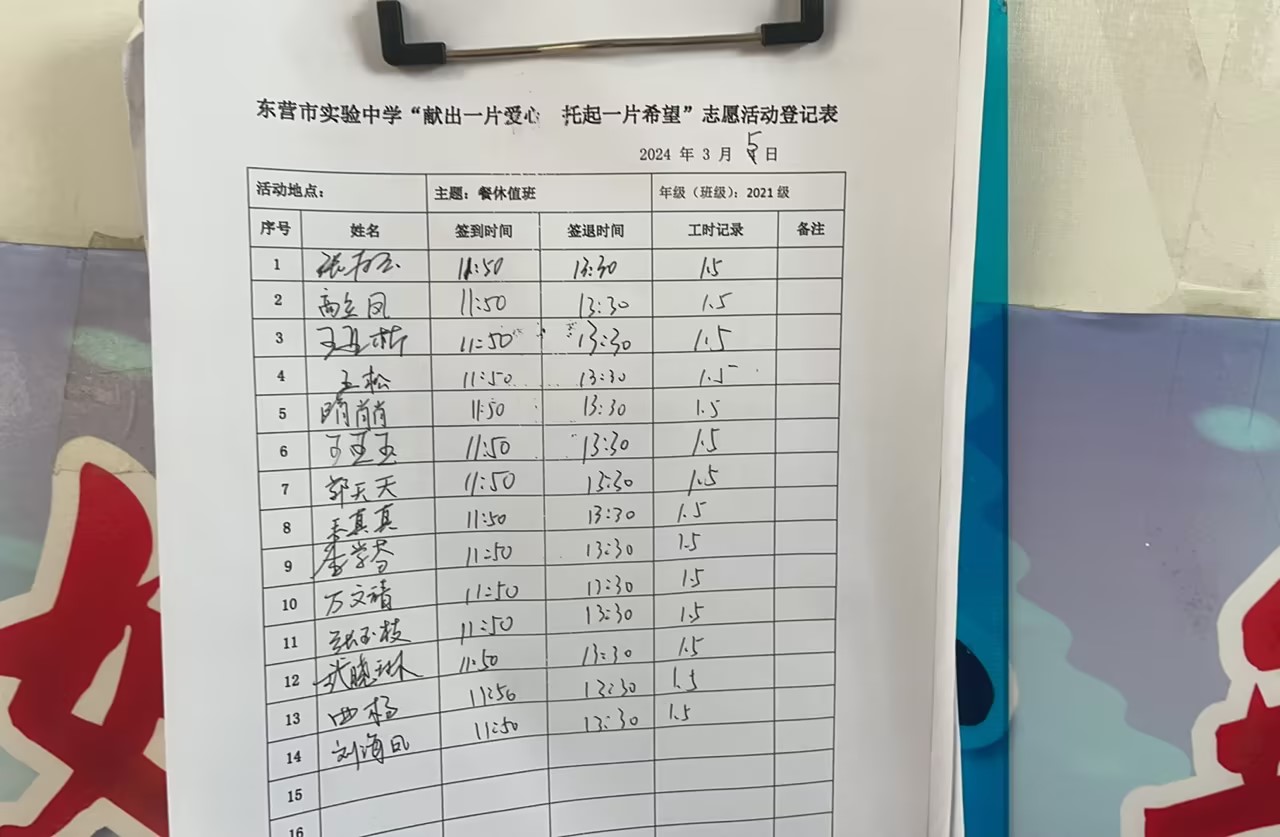 东营市实验中学“献出一片爱心 托起一片希望”志愿活动登记表
2024 年 3 月 5 日
活动地点： 主题：餐休值班 年级（班级）：2021 级
序号 姓名 签到时间 签退时间 工时记录 备注
1 11:50 13:30 1.5
2 高立凤 11:50 13:30 1.5
3 11:50 13:30 1.5
4 王松 11:50 13:30 1.5
5 隋肖肖 11:50 13:30 1.5
6 王亚玉 11:50 13:30 1.5
7 郭天天 11:50 13:30 1.5
8 真真 11:50 13:30 1.5
9 李学芬 11:50 13:30 1.5
10 万文靖 11:50 13:30 1.5
11 张玉枝 11:50 13:30 1.5
12 武晓琳 11:50 13:30 1.5
13 11:50 13:30 1.5
14 刘海凤 11:50 13:30 1.5
15
16